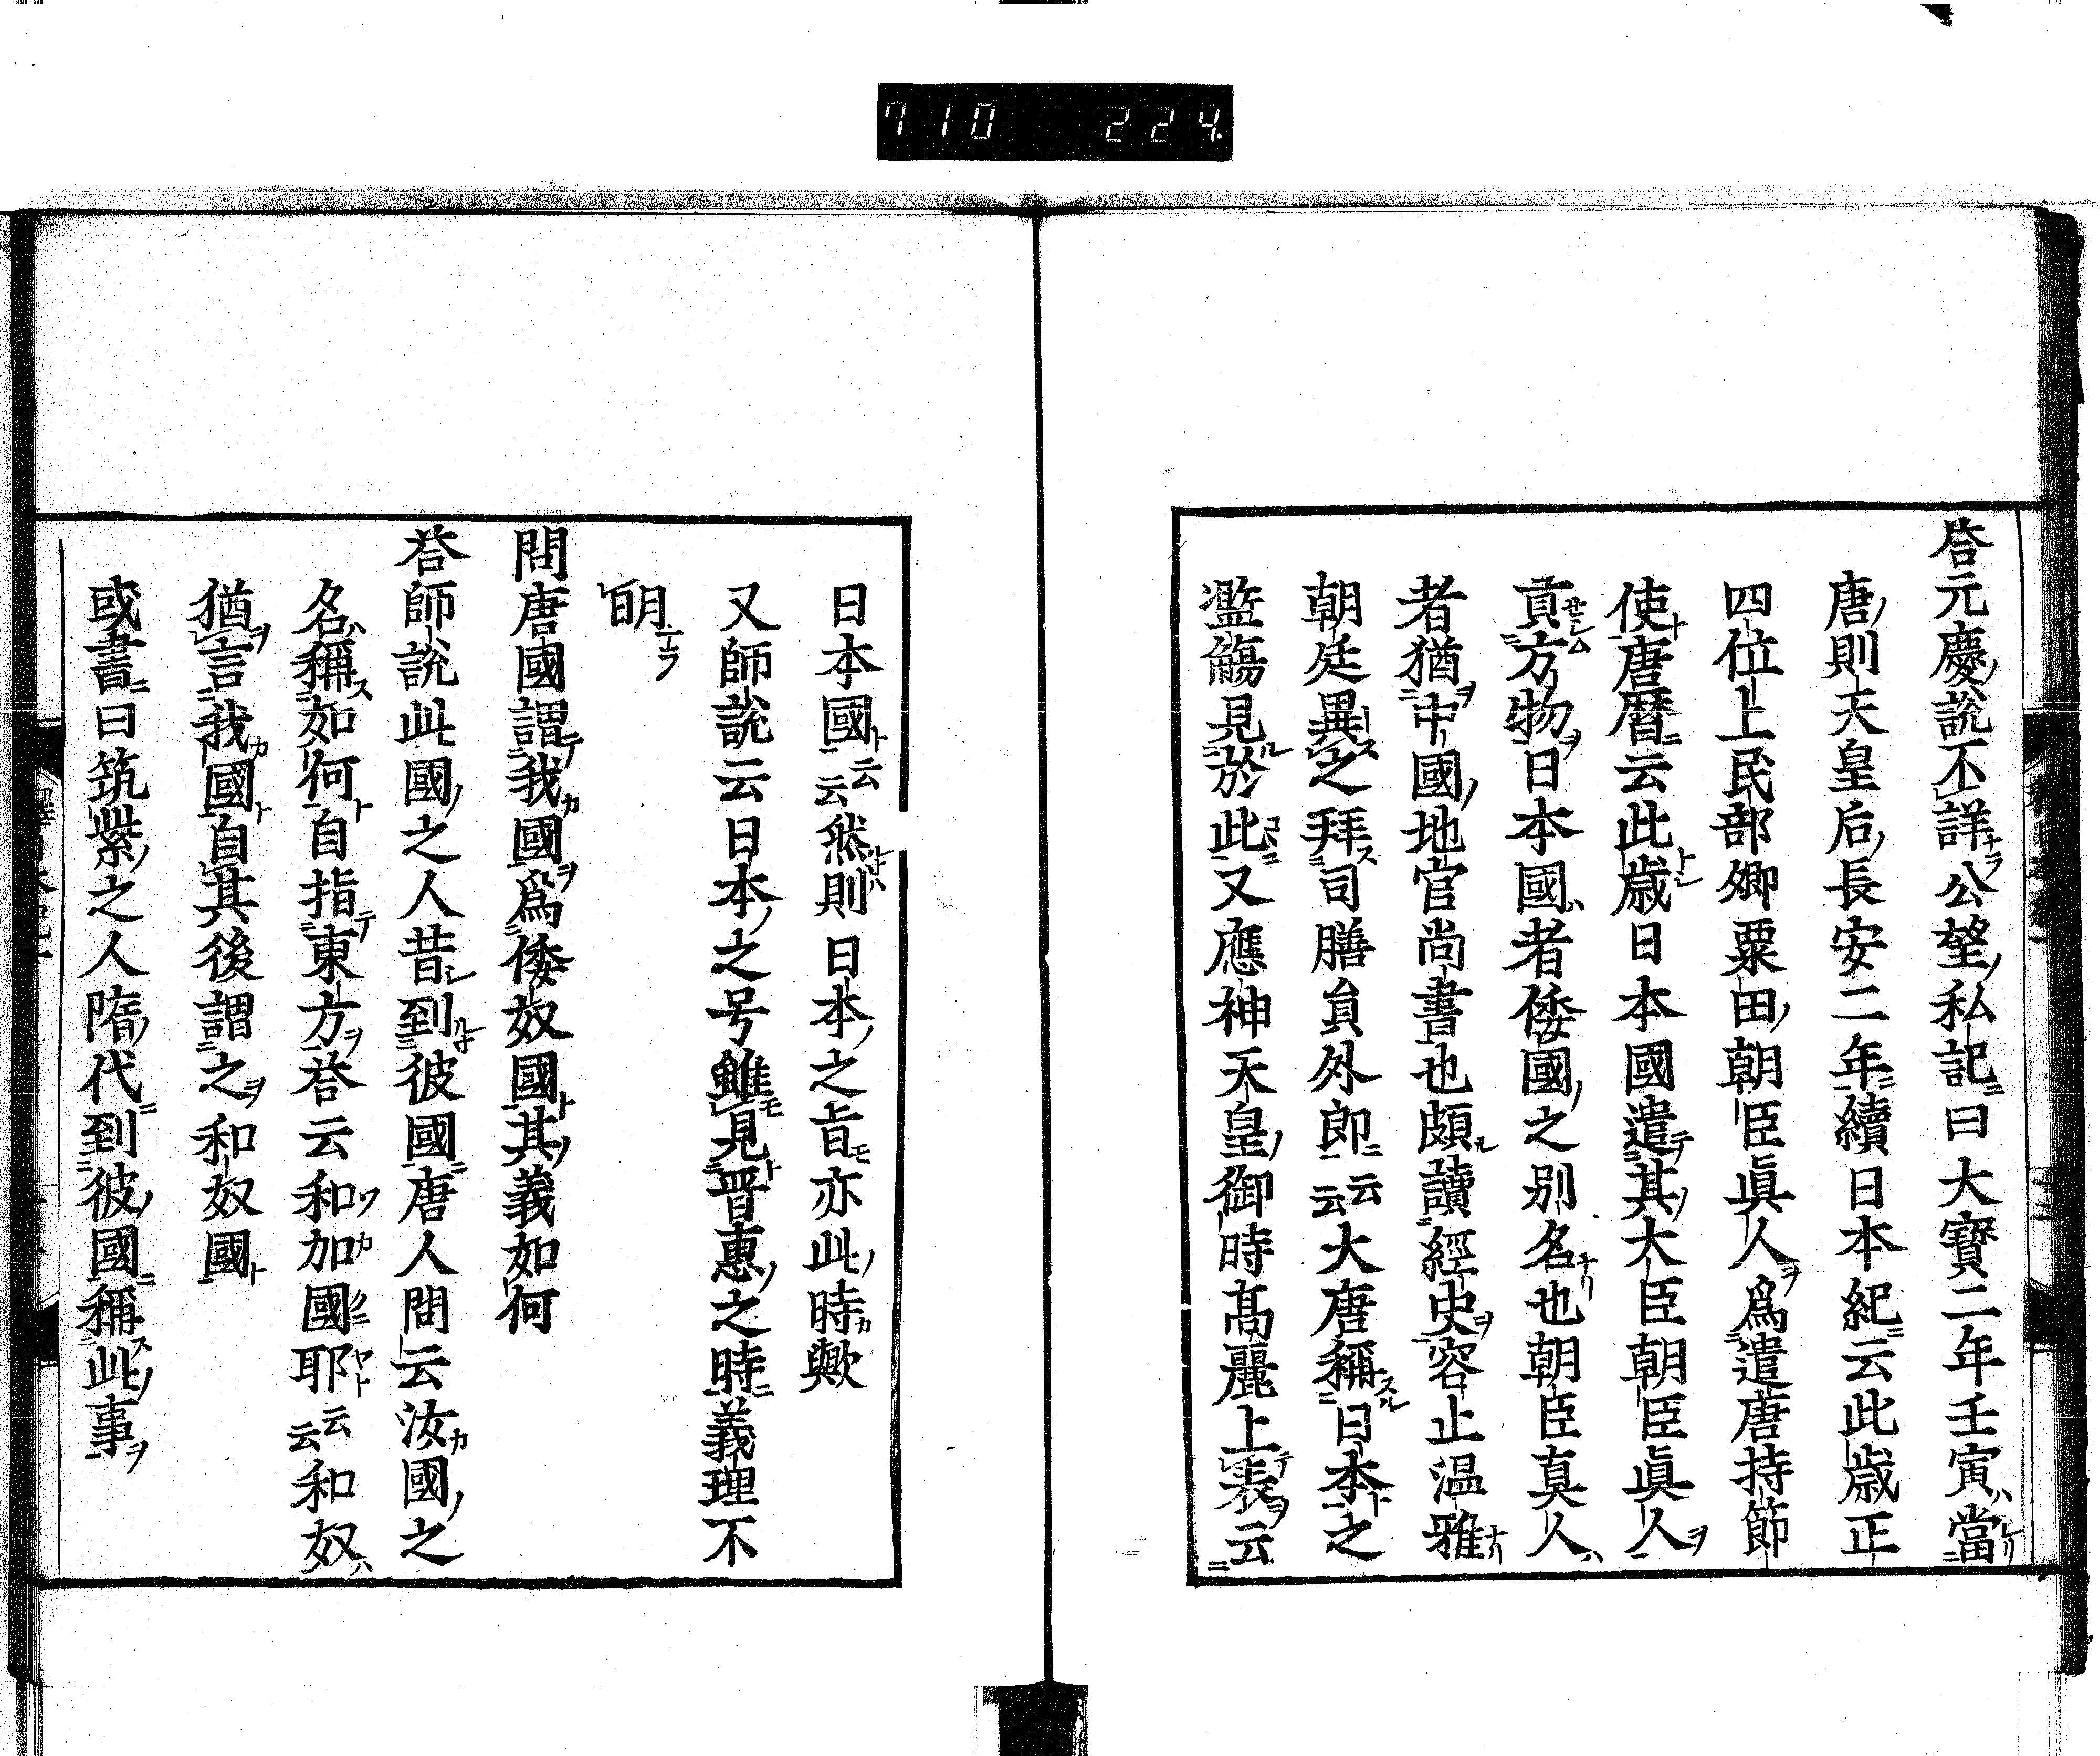 710 224
答元慶説不詳公望私記曰大寳二年壬寅當
唐則天皇后長安二年續日本紀云此歳正
四位上民部卿粟田朝臣眞人爲遣唐持節
使唐暦云此歳日本國遣其大臣朝臣眞人
貢方物日本國者倭國之別名也朝臣真人
者猶中國地官尚書也頗讀經史容止温雅
朝廷異之拜司膳員外郎云云大唐稱日本之
濫觴見於此又應神天皇御時髙麗上表云
日本國云云然則日本之旨亦此時歟
又師説云日本之号雖見晋惠之時義理不
明
問唐國謂我國爲倭奴國其義如何
答師説此國之人昔到彼國唐人問云汝國之
名稱如何自指東方答云和加國耶云云和奴
猶言我國自其後謂之和奴國
或書曰筑紫之人隋代到彼國稱此事